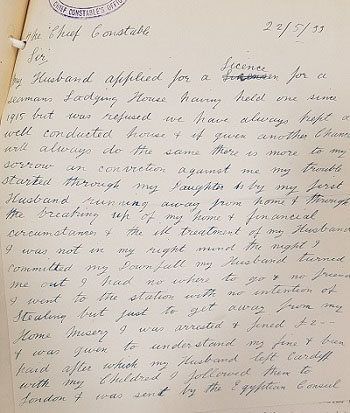 CHIEF CONSTABLE'S OFFICE
The Chief Constable 22/5/33
Sir
Licence
My Husband applied for a for a
seamans Lodging House having held one since
1915 but was refused we have always kept a
well conducted house & if given another Chance
will always do the same there is more to my
sorrow an conviction against me my trouble
started through my Daughter by my first
Husband running away from home & through
the breaking up of my home & financeal
circumstances & the ill treatment of my Husband
I was not in my right mind the night I
committed my downfall my Husband turned
me out I had no where to go & no friend
I went to the station with no intention of
Stealing but just to get away from my
Home Misery I was arrested & fined £2--
& was given to understand my fine & been
paid after which my Husband left Cardiff
with my Children I followed them to
London & was sent by the Egyptian Consul